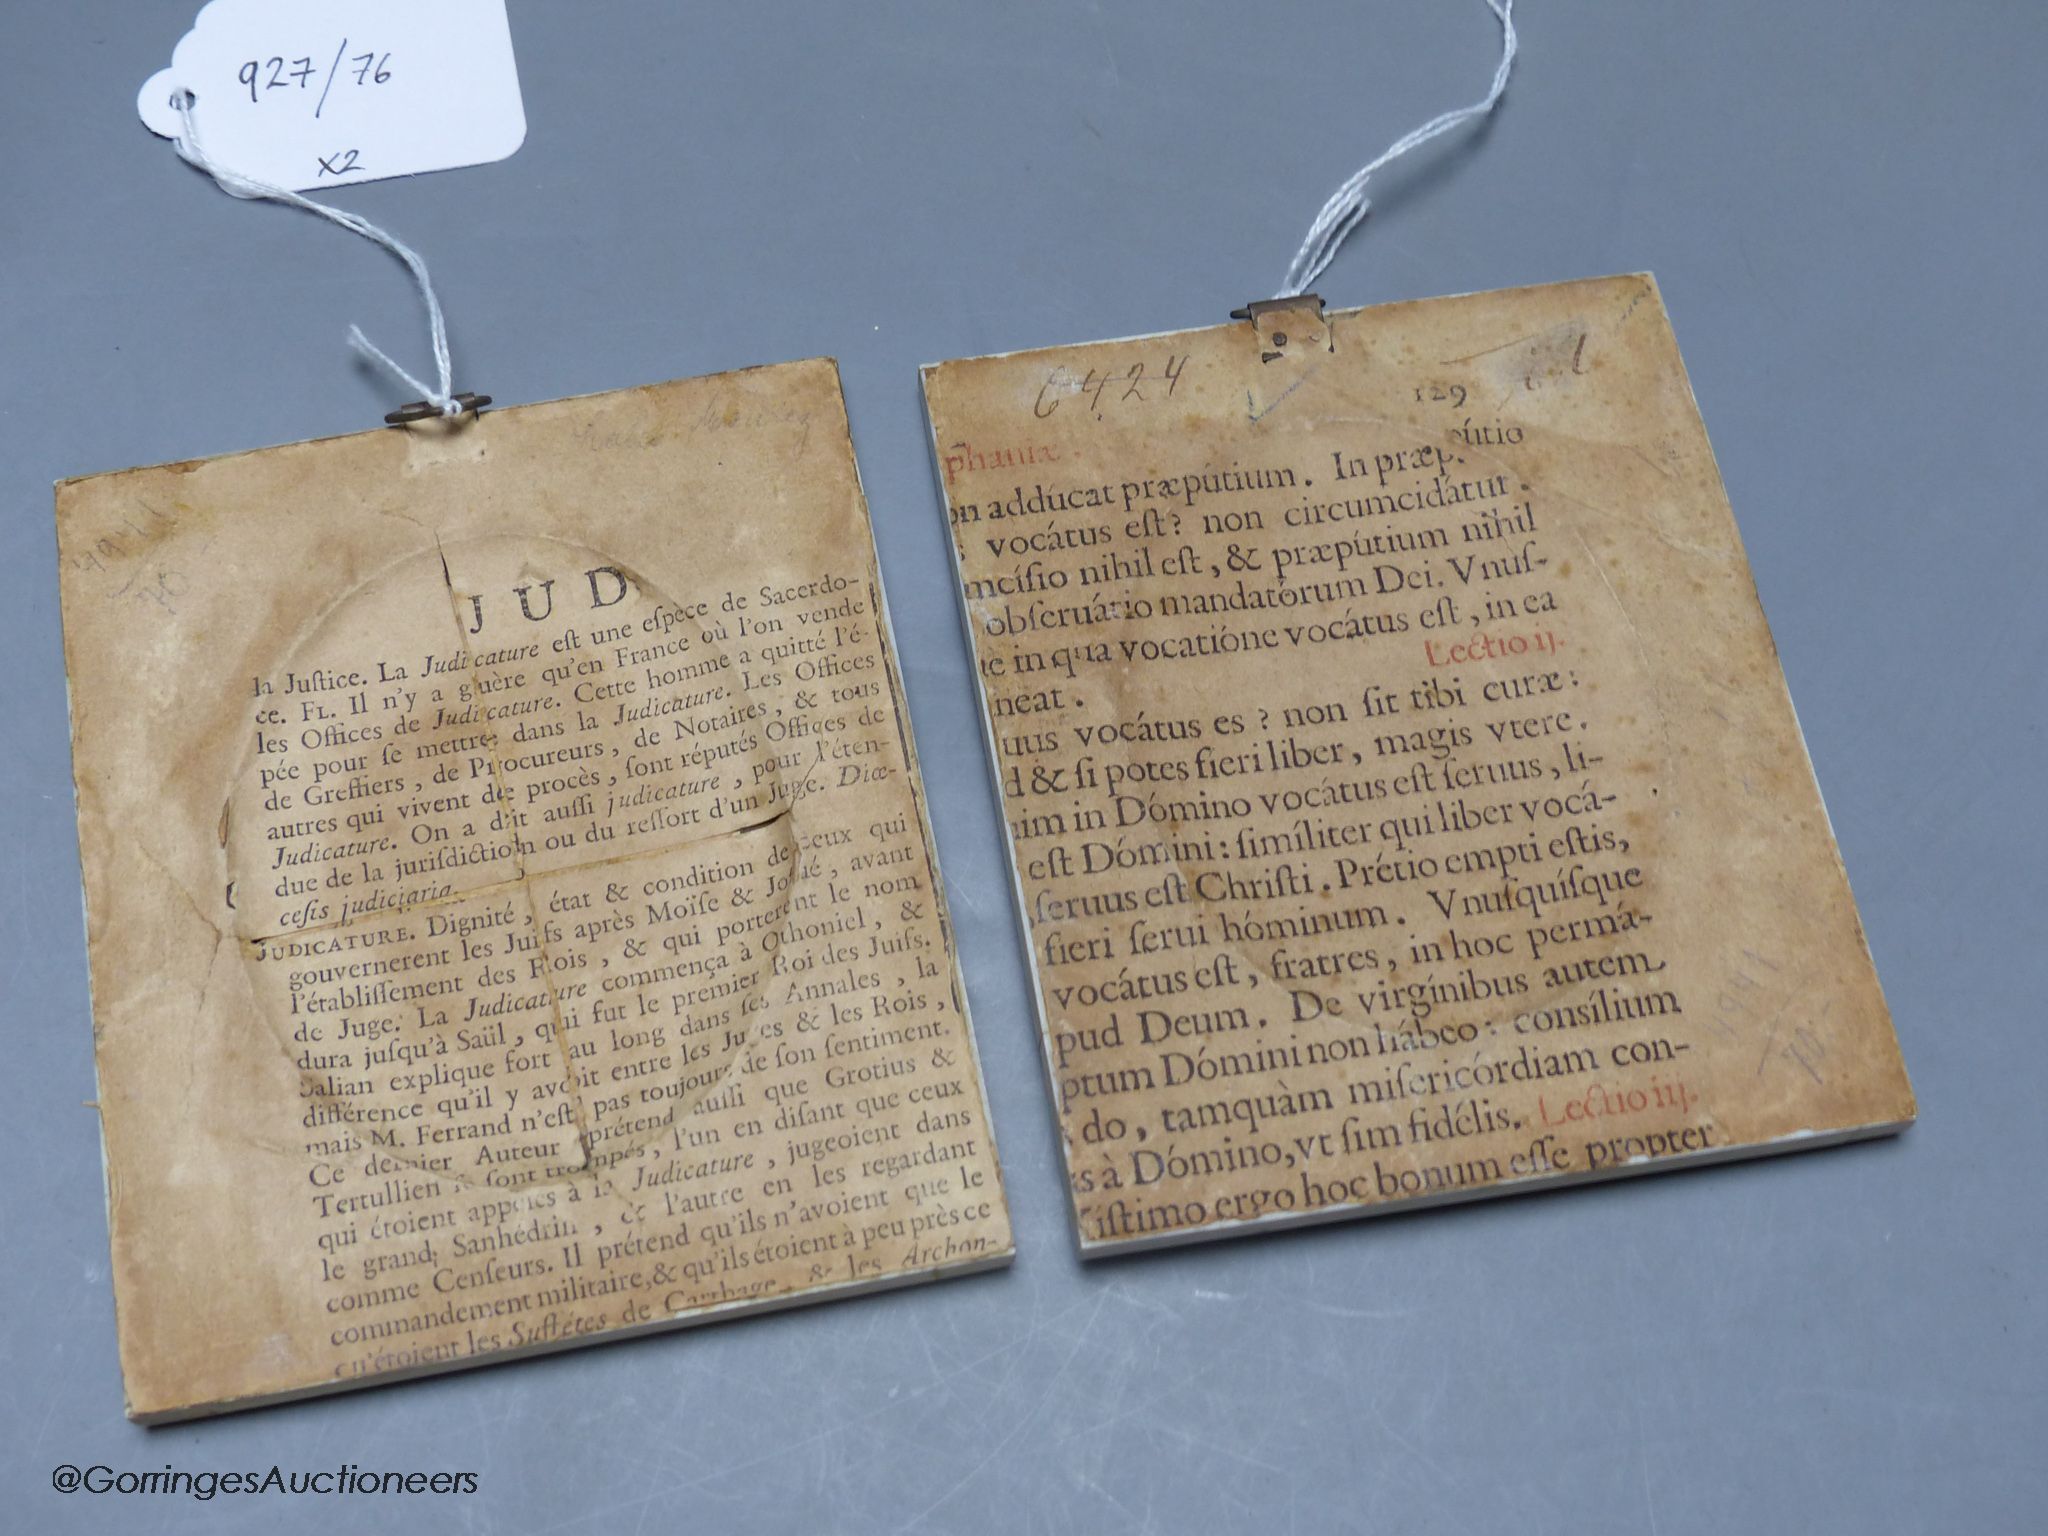 927/76
x2
JUD
la Juſtice. La Judicature eſt une eſpèce de Sacerdo-
ce. FL. Il n'y a guère qu'en France où l'on vende
les Offices de Judicature. Cette homme a quitté l'é-
pée pour ſe mettre dans la Judicature. Les Offices
de Greffiers, de Procureurs, de Notaires, & tous
autres qui vivent de procès, ſont réputés Offices de
Judicature. On a dit auſſi judicature, pour l'éten-
due de la juriſdiction ou du reſſort d'un Juge. Diœ-
ceſis judiciaria.
JUDICATURE. Dignité, état & condition de ceux qui
gouvernerent les Juifs après Moïſe & Joſué, avant
l'établiſſement des Rois, & qui porterent le nom
de Juge. La Judicature commença à Othoniel, &
dura juſqu'à Saül, qui fut le premier Roi des Juifs.
Salian explique fort au long dans ſes Annales, la
différence qu'il y avoit entre les Juges & les Rois,
mais M. Ferrand n'eſt pas toujours de ſon ſentiment.
Ce dernier Auteur prétend auſſi que Grotius &
Tertullien ſe ſont trompés, l'un en diſant que ceux
qui étoient appelés à la Judicature, jugeoient dans
le grand Sanhédrin, & l'autre en les regardant
comme Cenſeurs. Il prétend qu'ils n'avoient que le
commandement militaire, & qu'ils étoient à peu près ce
qu'étoient les Suffétes de Carthage, & les Archon-
6424
129
phaniæ.
on addúcat præpútium. In præpútio
s vocátus eſt? non circumcidátur.
mcíſio nihil eſt, & præpútium nihil
obſeruátio mandatórum Dei. Vnuſ-
e in qua vocatióne vocátus eſt, in ea
neat. Lectio ij.
uus vocátus es? non ſit tibi curæ:
d & ſi potes fieri liber, magis vtere.
nim in Dómino vocátus eſt ſeruus, li-
eſt Dómini: ſimíliter qui liber vocá-
ſeruus eſt Chriſti. Prétio empti eſtis,
fieri ſerui hóminum. Vnuſquíſque
vocátus eſt, fratres, in hoc permá-
pud Deum. De virgínibus autem
ptum Dómini non hábeo: consílium
do, tamquàm miſericórdiam con-
s à Dómino, vt ſim fidélis. Lectio iij.
iſtimo ergo hoc bonum eſſe propter
@GorringesAuctioneers